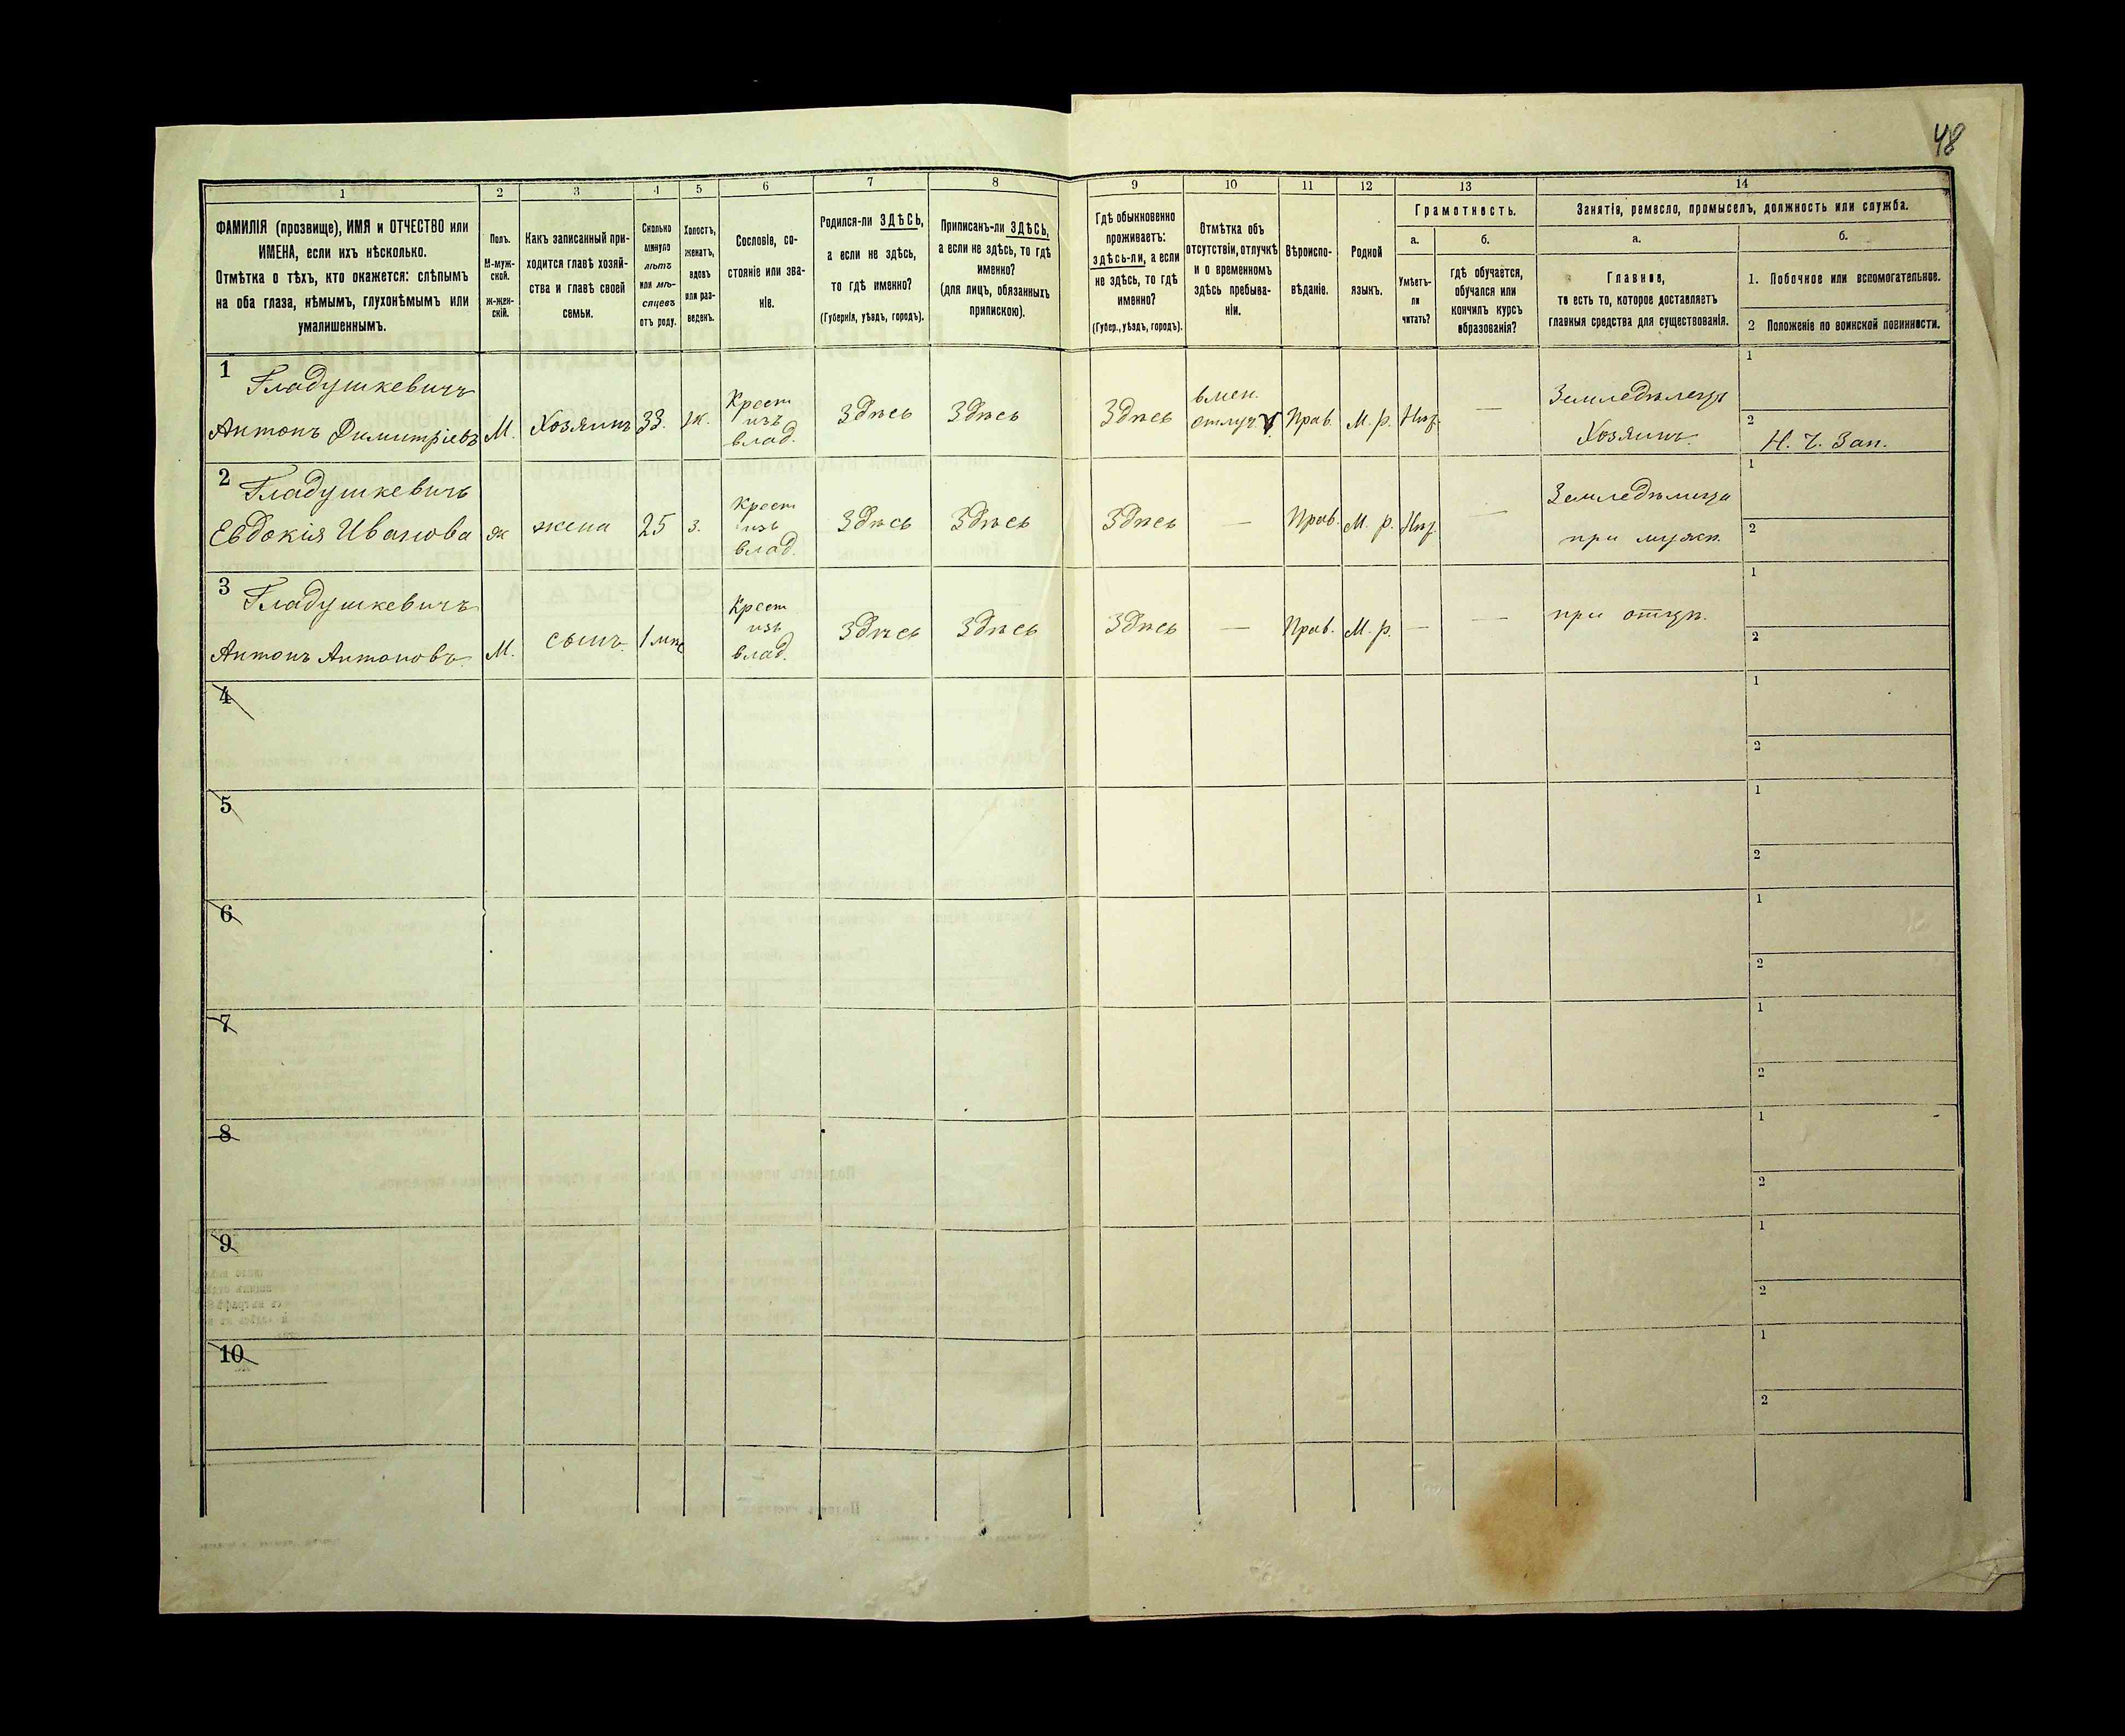 48
1 2 3 4 5 6 7 8 9 10 11 12 13 14
ФАМИЛІЯ (прозвище), ИМЯ и ОТЧЕСТВО или
ИМЕНА, если ихъ нѣсколько.
Отмѣтка о тѣхъ, кто окажется: слѣпымъ
на оба глаза, нѣмымъ, глухонѣмымъ или
умалишеннымъ.
Полъ.
М-муж-
ской.
ж-жен-
скій.
Какъ записанный при-
ходится главѣ хозяй-
ства и главѣ своей
семьи.
Сколько
минуло
лѣтъ
или мѣ-
сяцевъ
отъ роду.
Холостъ,
женатъ,
вдовъ
или раз-
веденъ.
Сословіе, со-
стояніе или зва-
ніе.
Родился-ли ЗДѢСЬ,
а если не здѣсь,
то гдѣ именно?
(Губернія, уѣздъ, городъ).
Приписанъ-ли ЗДѢСЬ,
а если не здѣсь, то гдѣ
именно?
(для лицъ, обязанныхъ
припискою).
Гдѣ обыкновенно
проживаетъ:
здѣсь-ли, а если
не здѣсь, то гдѣ
именно?
(Губер., уѣздъ, городъ).
Отмѣтка объ
отсутствіи, отлучкѣ
и о временномъ
здѣсь пребыва-
ніи.
Вѣроиспо-
вѣданіе.
Родной
языкъ.
Грамотность.
а.
Умѣетъ-
ли
читать?
б.
гдѣ обучается,
обучался или
кончилъ курсъ
образованія?
Занятіе, ремесло, промыселъ, должность или служба.
а.
Главное,
то есть то, которое доставляетъ
главныя средства для существованія.
б.
1. Побочное или вспомогательное.
2 Положеніе по воинской повинности.
1
Гладушкевичъ
Антонъ Димитріевъ
М.
Хозяинъ
33.
ж.
Крест
изъ
влад.
Здѣсь
Здѣсь
Здѣсь
отлуч.
Прав.
М. р.
—
Земледѣлецъ
Хозяинъ.
1
2
Н. Ч. Зап.
2
Гладушкевичъ
Евдокія Иванова
ж
жена
25
з.
Крест
изъ
влад.
Здѣсь
Здѣсь
Здѣсь
—
Прав.
М. р.
—
при мужѣ.
1
2
3
Гладушкевичъ
Антонъ Антоновъ
М.
сынъ.
Крест
изъ
влад.
Здѣсь
Здѣсь
Здѣсь
—
Прав.
М. р.
—
—
при отцѣ.
1
2
4
1
2
5
1
2
6
1
2
7
1
2
8
1
2
9
1
2
10
1
2